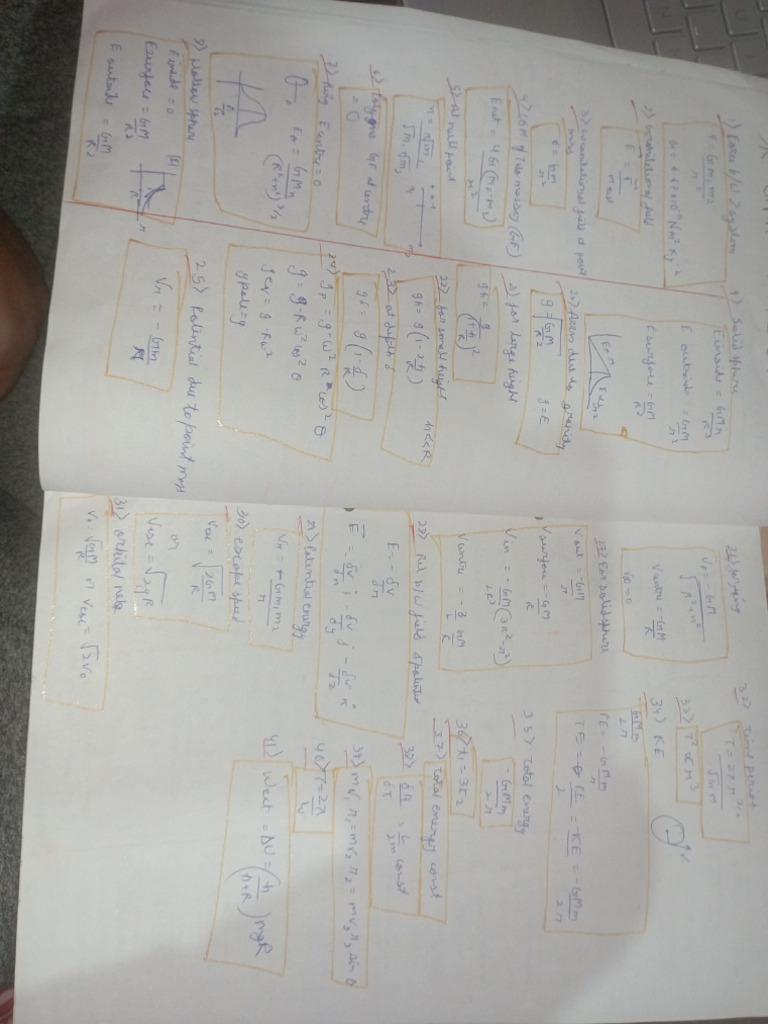 1) Force b/w 2 system
F = Gm₁m₂ / r²
G = 6.67×10⁻¹¹ Nm² Kg⁻²
2) Gravitational field
E = F / m
3) Gravitational field of point mass
E = GM / r²
5) At null point
6) GF at centre
= 0
7) Ring E centre = 0
Ep = GMr / (R²+r²)^3/2
8) Hollow sphere
E inside = 0
E surface = GM / R²
E outside = GM / R²
9) Solid sphere
E inside = GMr / R³
E outside = GM / r²
E surface = GM / R²
20) Accn due to gravity
g = GM / R²
g = E
2) for large height
gh = g / (1+h/R)²
22) for small height
h<<R
gh = g (1-2h/R)
23) at depth d
gd = g (1-d/R)
24) gp = g-ω² R cos² θ
g = g-Rω² cos² θ
geq = g-Rω²
g pole = g
25) Potential due to point mass
Vr = -GM / R
26) for ring
Vp = -GM / √R²+r²
Vcentre = -GM / R
V∞ = 0
27) For solid sphere
Vout = -GM / r
Vsurface = -GM / R
Vin = -GM / 2R³ (3R²-r²)
Vcentre = -3/2 GM/R
28) Rel b/w field & potential
E = -δV / δr
E = -δV/δx i - δV/δy j - δV/δz k
29) Potential energy
Vr = -Gm₁m₂ / r
30) escape speed
Vesc = √2GM / R
or
Vesc = √2gR
31) orbital
V₀ = √GM/R or Vesc = √2V₀
32) Time period
T = 2πr^3/2 / √GM
33) T² ∝ r³
34) KE
GMm / 2r
PE = -GMm / r
TE = PE / 2 = -KE = -GMm / 2r
35) Total energy
-GMm / 2r
37) Total energy const
38) δA / δT = L / 2m const
39) mv₁r₁ = mv₂r₂ = mv₃r₃ sin θ
40) T = 2π / ω
41) Wext = ΔU = (h / h+R) mgR